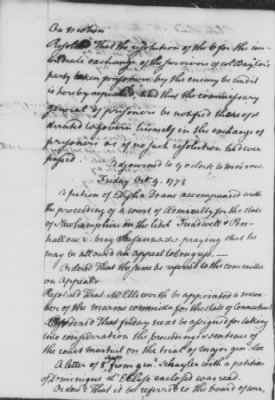 On motion
Resolved That the resolution of the 6 for the im-
mediate exchange of the prisoners of col Baylor's
party taken prisoners by the enemy be and it
is hereby repealed and that the commissary
general of prisoners be notified thereof &
directed to govern himself in the exchange of
prisoners as if no such resolution had ever
passed.
Adjourned to 9 o Clock to morrow.
Friday Oct. 9. 1778
A petition of Elisha Doane accompanied with
the proceedings of a court of Admiralty for the state
of Newhampshire on the libel Treadwell & Pen-
hallow v. brig Susannah, praying that he
may be allowed an appeal to congress. —
Ordered that the same be referred to the committee
on Appeals
Resolved That Mr Ellsworth be appointed a mem-
ber of the marine committee for the state of Connecticut
Ordered That friday next be assigned for taking
into consideration the proceedings & sentence of
the court martial on the trial of major gen. Lee
A letter of 5 from gen. Schuyler with a petition
of Dominique L'Eclise enclosed was read.
Ordered That it be referred to the board of war.